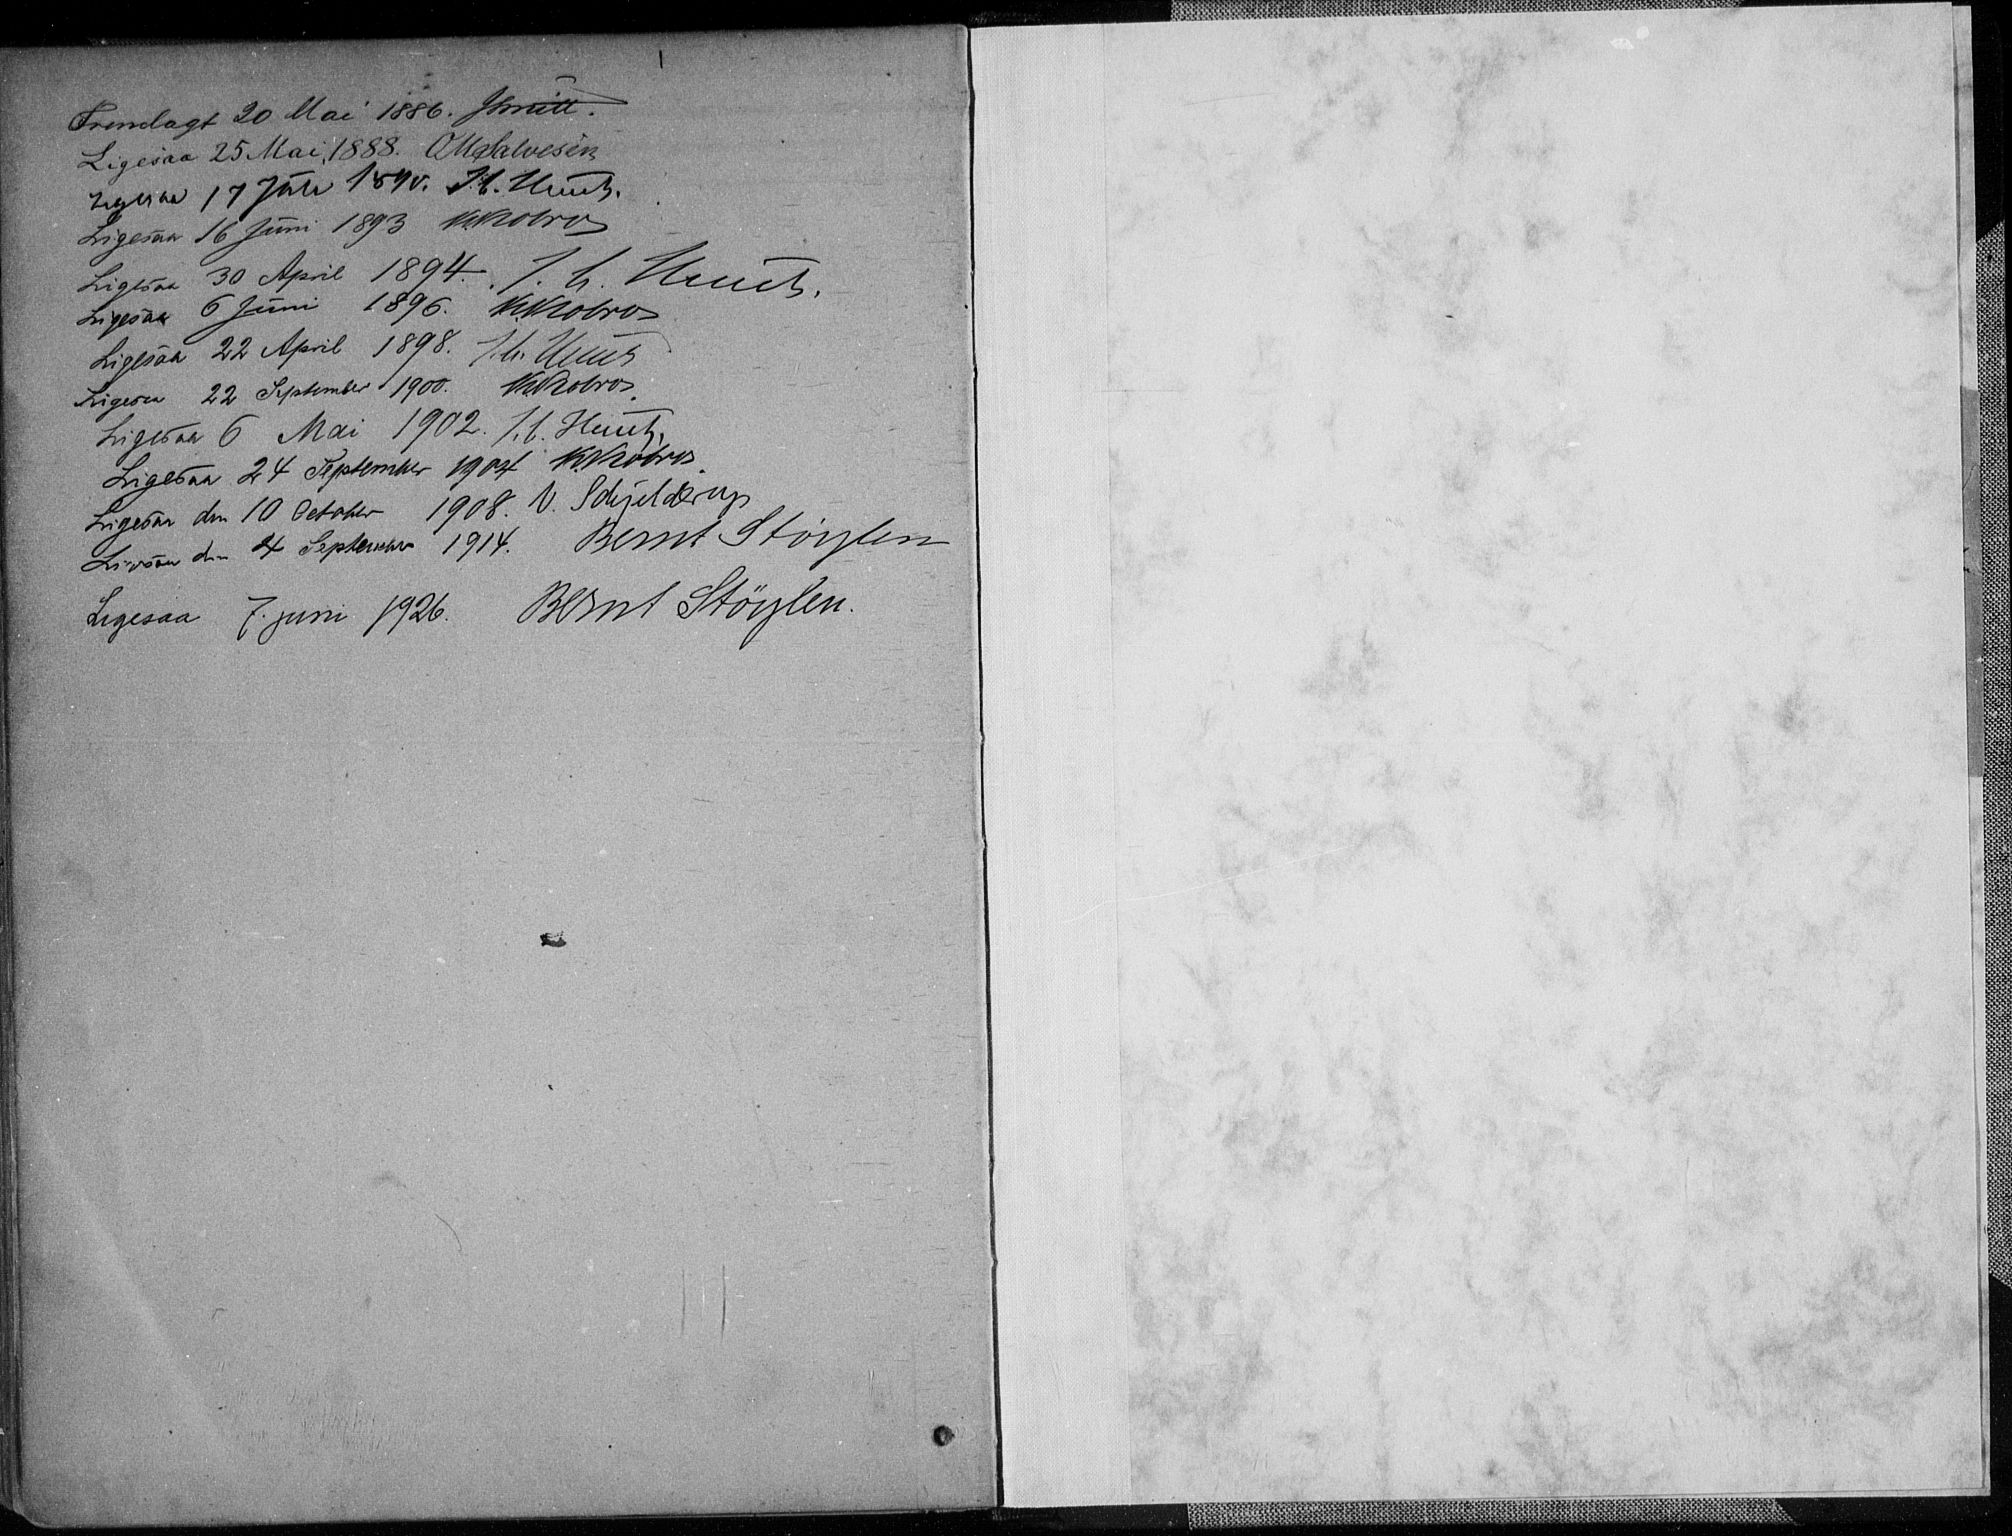 Fremlagt 20 Mai 1886. JSmitt.
Ligesaa 25 Mai 1888. OMSalvesen
Ligesaa 17 Juli 1890. J. C. Heuch.
Ligesaa 16 Juni 1893 KKrobros
Ligesaa 30 April 1894. J. C. Heuch.
Ligesaa 6 Juni 1896.
Ligesaa 22 April 1898. J. C. Heuch
Ligesaa 22 September 1900.
Ligesaa 6 Mai 1902. J. C. Heuch.
Ligesaa 24 September 1904
Ligesaa den 10 October 1908. V. Schjelderup
Ligesaa den 4 September 1914. Bernt Støylen
Ligesaa 7. juni 1926. Bernt Støylen.